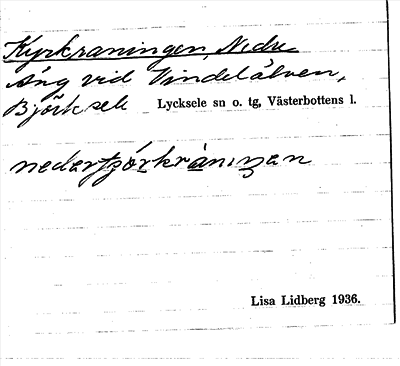 Kyrkraningen, Nedre
Äng vid Vindelälven,
Björksele Lycksele sn o. tg, Västerbottens l.
Lisa Lidberg 1936.